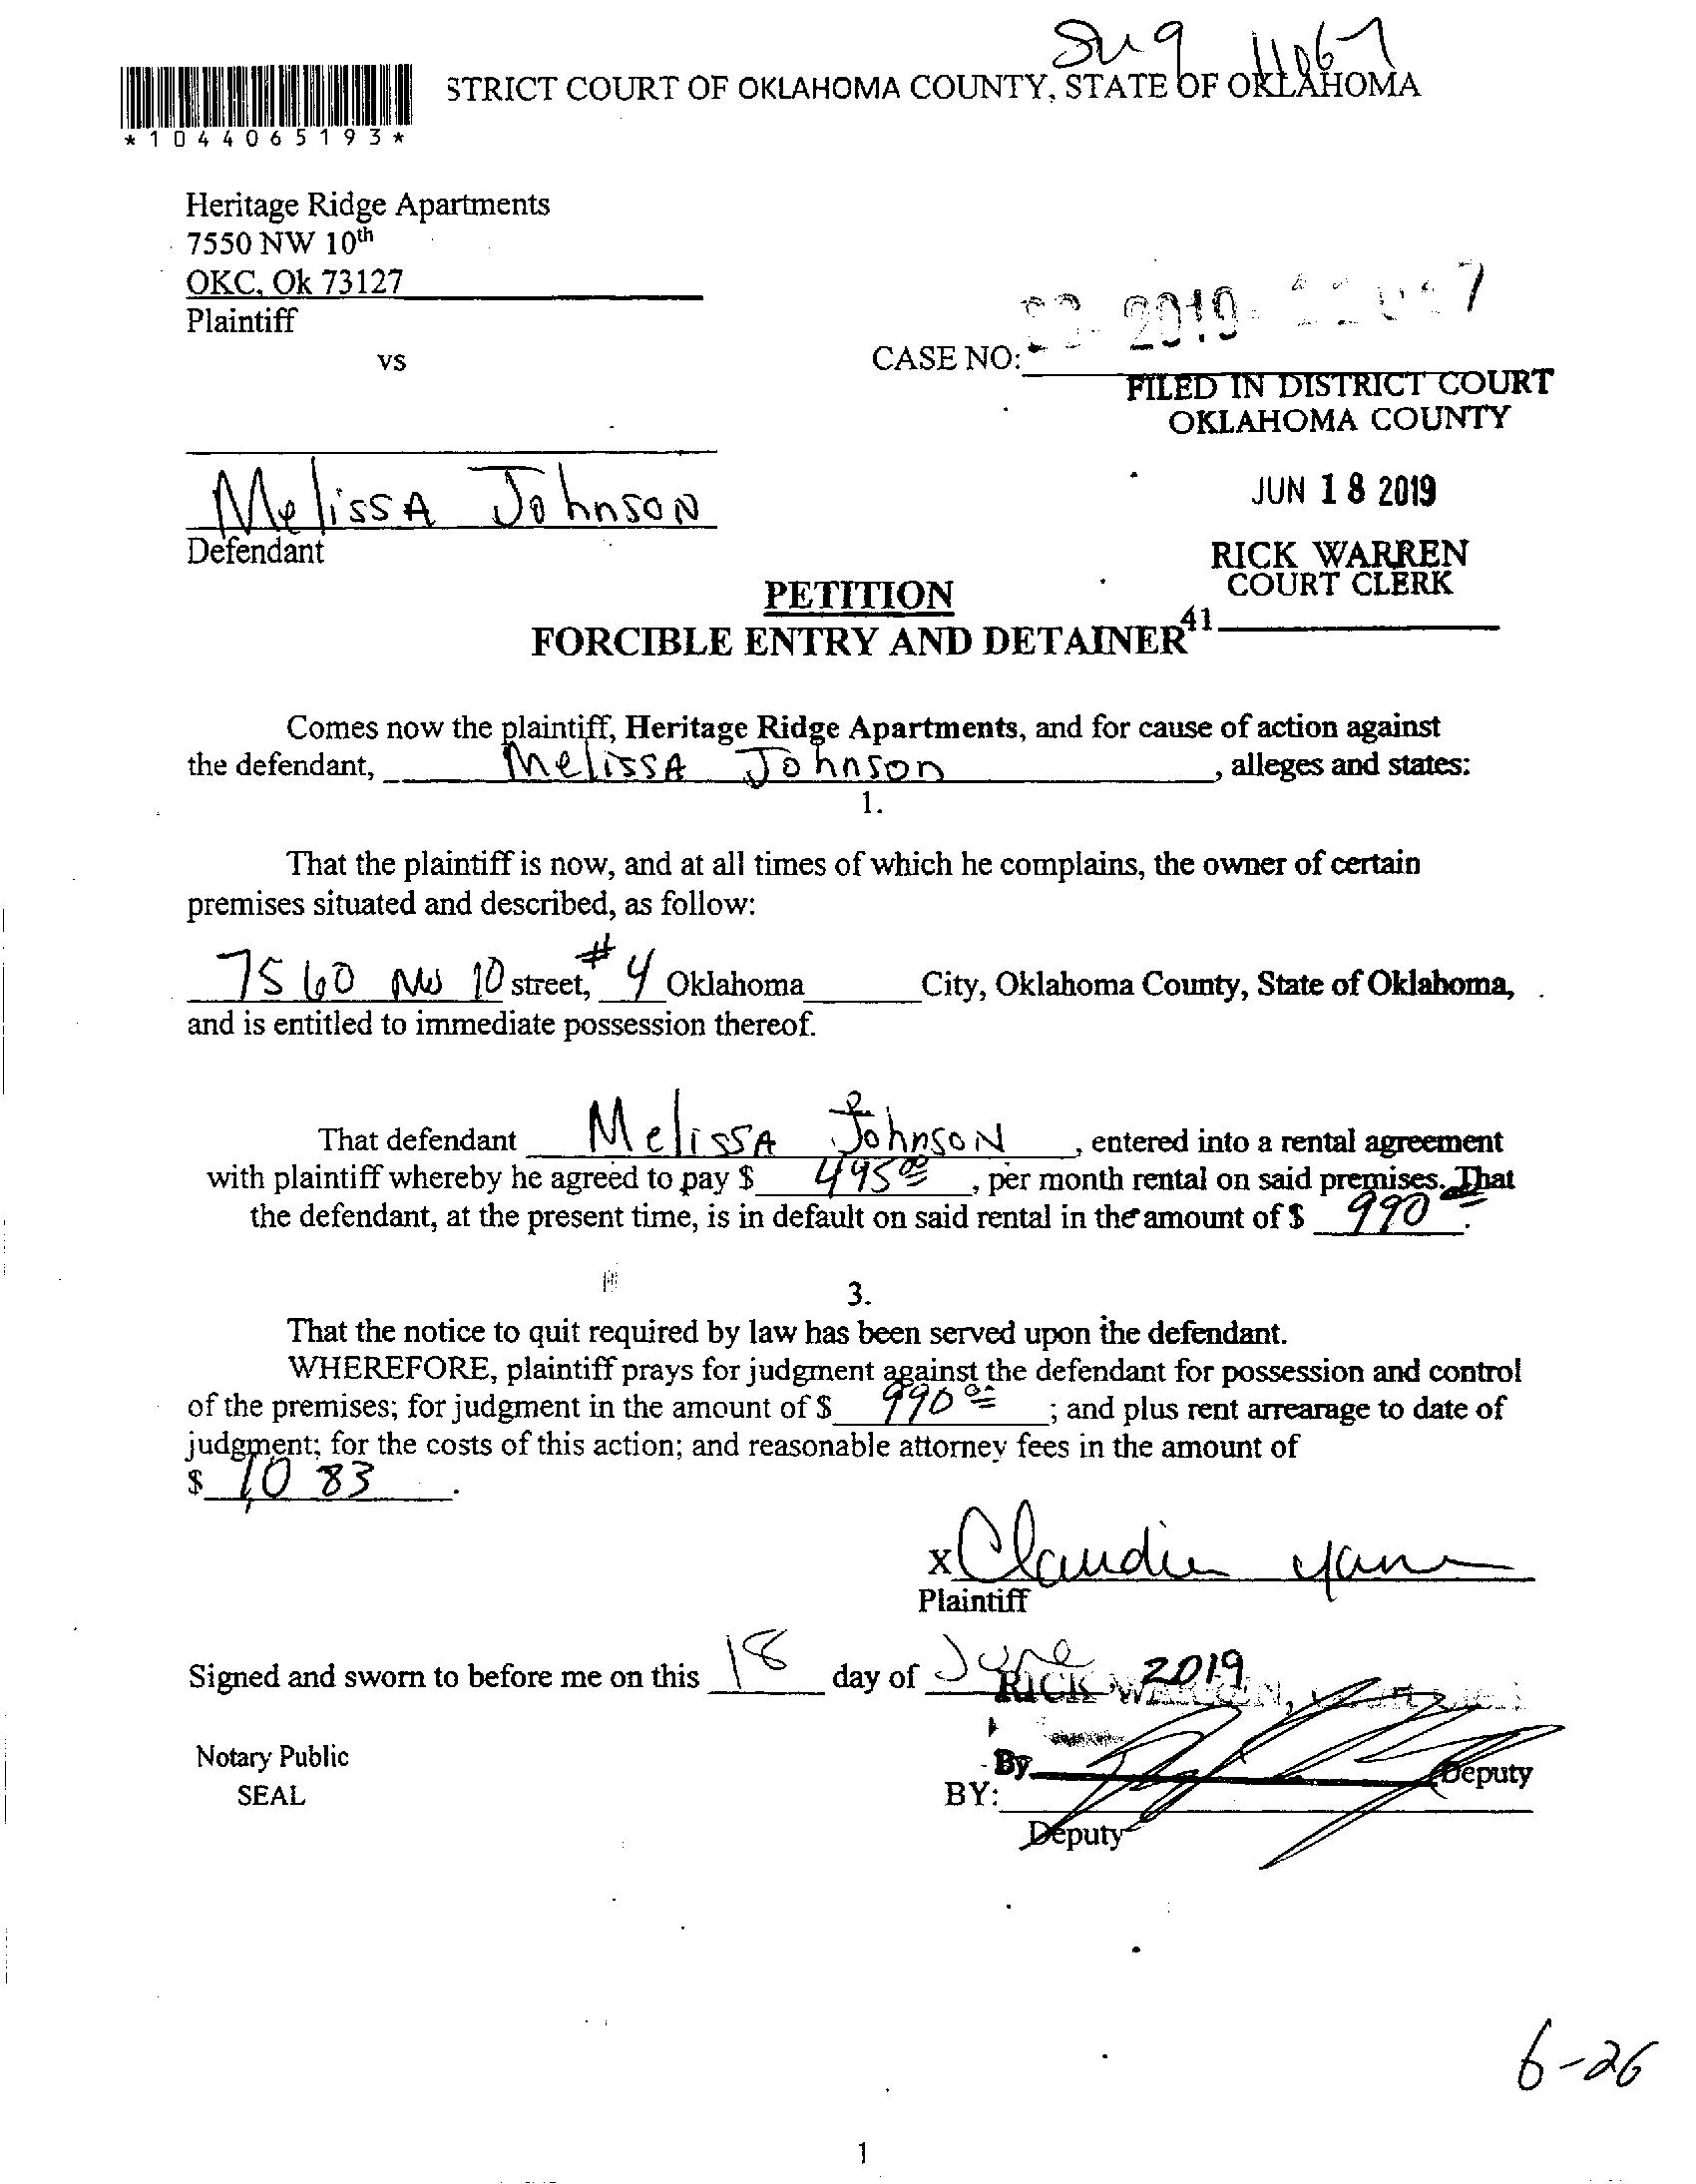 11067
STRICT COURT OF OKLAHOMA COUNTY, STATE OF OKLAHOMA
*1044065193*
Heritage Ridge Apartments
7550 NW 10th
OKC, Ok 73127
Plaintiff
vs
2019
CASE NO:
FILED IN DISTRICT COURT
OKLAHOMA COUNTY
JUN 18 2019
Melissa Johnson
Defendant
RICK WARREN
COURT CLERK
PETITION
41
FORCIBLE ENTRY AND DETAINER
Comes now the plaintiff, Heritage Ridge Apartments, and for cause of action against
the defendant, Melissa Johnson, alleges and states:
1.
That the plaintiff is now, and at all times of which he complains, the owner of certain
premises situated and described, as follow:
7560 NW 10 street, #4 Oklahoma City, Oklahoma County, State of Oklahoma,
and is entitled to immediate possession thereof.
That defendant Melissa Johnson, entered into a rental agreement
with plaintiff whereby he agreed to pay $ 495 00, per month rental on said premises. That
the defendant, at the present time, is in default on said rental in the amount of $ 990.
3.
That the notice to quit required by law has been served upon the defendant.
WHEREFORE, plaintiff prays for judgment against the defendant for possession and control
of the premises; for judgment in the amount of $ 990 00; and plus rent arrearage to date of
judgment; for the costs of this action; and reasonable attorney fees in the amount of
$ 1,083.
x Claudia
Plaintiff
Signed and sworn to before me on this 18 day of June 2019
RICK WARREN,
Notary Public
SEAL
By Deputy
BY:
Deputy
6-26
1